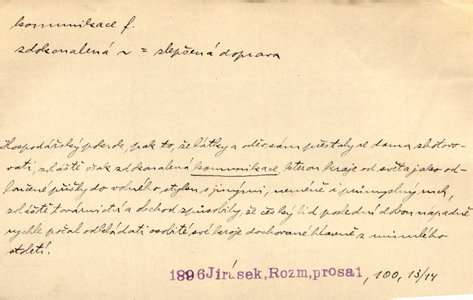 komunikace f.
zdokonalená ~ = zlepšená doprava
Hospodářský pokrok, pak to, že látky a oděv sám přestaly se doma zhotovo-
vati, zvláště však zdokonalená komunikace, kterou kraje od světa jako od-
loučené přišly do volného styku s jinými, neméně i průmyslný ruch,
zvláště tovární a obchod způsobily, že český lid poslední dobou nápadně
rychle počal odkládati osobité své kroje dochované hlavně z minulého
století.
1896 Jirásek, Rozm, prosa 1, 100, 13/14